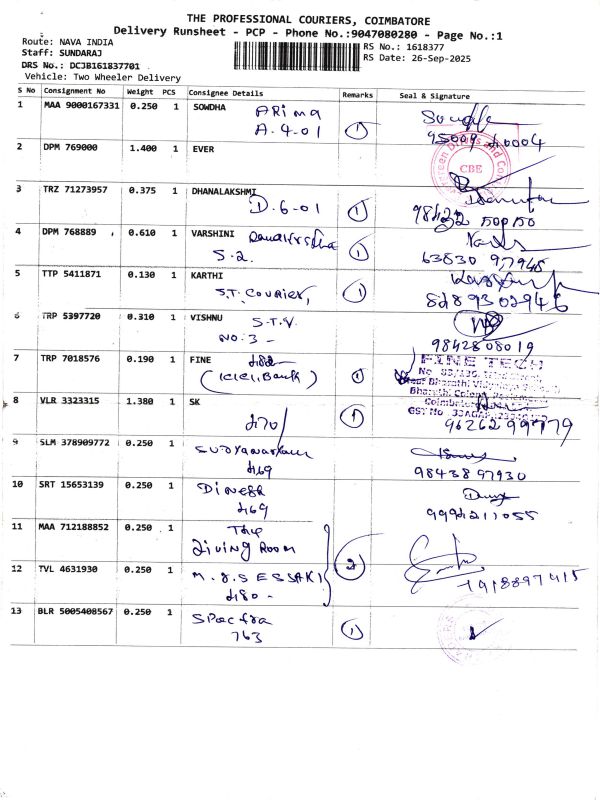 THE PROFESSIONAL COURIERS, COIMBATORE
Delivery Runsheet - PCP - Phone No.:9047080280 - Page No.:1
Route: NAVA INDIA
Staff: SUNDARAJ
DRS No.: DCJB161837701
Vehicle: Two Wheeler Delivery
RS No.: 1618377
RS Date: 26-Sep-2025
S No Consignment No Weight PCS Consignee Details Remarks Seal & Signature
1 MAA 9000167331 0.250 1 SOWDHA ARima
A.4.01 1
2 DPM 769000 1.400 1 EVER
CBE
3 TRZ 71273957 0.375 1 DHANALAKSHMI
D.6-01 1
4 DPM 768889 0.610 1 VARSHINI
S.2. 1 63830 97945
5 TTP 5411871 0.130 1 KARTHI
S.T. COURIER, 1 8289302946
6 TRP 5397720 0.310 1 VISHNU S.T.V
NO.3 - 9842808019
7 TRP 7018576 0.190 1 FINE FINE TECH
Bank) 1
8 VLR 3323315 1.380 1 SK
1 96262 99779
9 SLM 378909772 0.250 1
469 98438 97930
10 SRT 15653139 0.250 1 DINESH
469 9994211055
11 MAA 712188852 0.250 1 The
Living Room
12 TVL 4631930 0.250 1 M.G.S ESSAKI 2
480 -
13 BLR 5005408567 0.250 1 Spectra
763 1